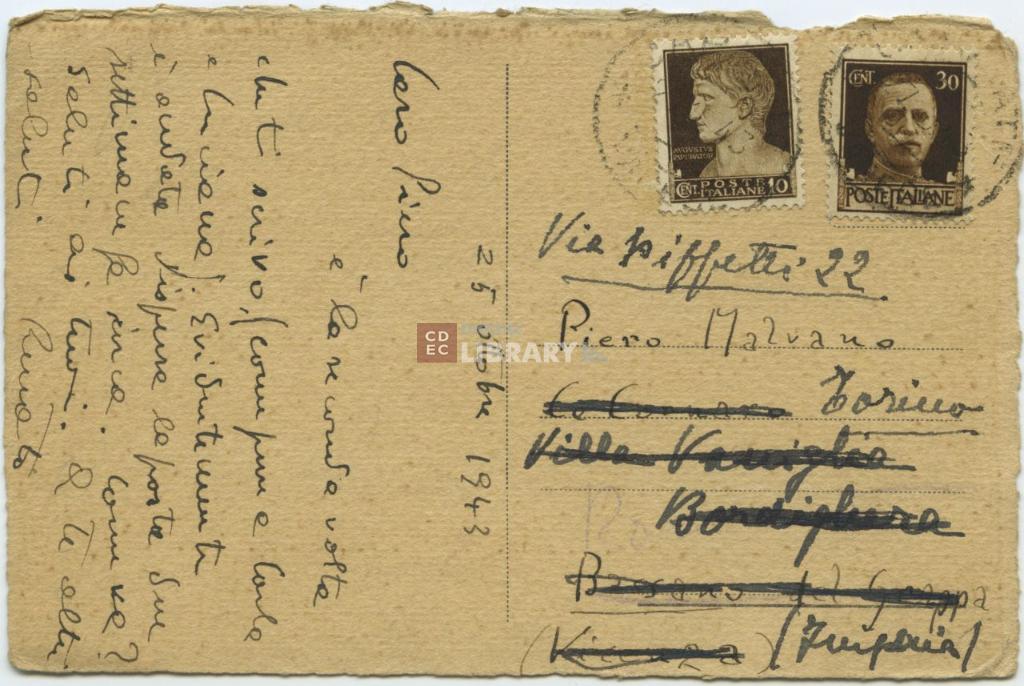 25 ottobre 1943
Caro Piero
è la seconda volta
che ti scrivo, (come pure Carla
e Luciana) Evidentemente
è andata dispersa la posta due
settimane fa circa. Come va?
Saluti ai tuoi. A te altri
saluti Renato
AVGVSTVS
IMPERATOR
CENT. POSTE ITALIANE 10
CENT 30
POSTE ITALIANE
Via Piffetti 22
Piero Malvano
Ca Cornaro Torino
Villa Vaniglia
Bordighera
Bassano del Grappa
(Vicenza) (Imperia)
CDEC
LIBRARY